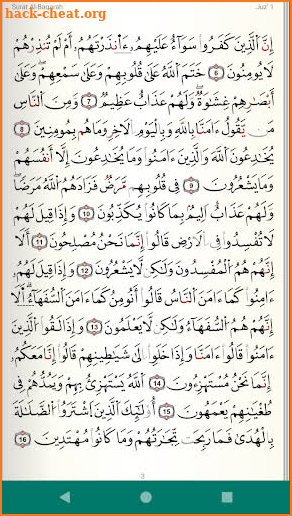 Surat Al-Baqarah Juz' 1
إِنَّ ٱلَّذِينَ كَفَرُوا۟ سَوَآءٌ عَلَيْهِمُۥٓ ءَآنذَرْتَهُمُۥٓ أَمْ لَمْ تُنذِرْهُمْ
لَا يُومِنُونَ 6 خَتَمَ ٱللَّهُ عَلَىٰ قُلُوبِهِمْ وَعَلَىٰ سَمْعِهِمْ وَعَلَىٰٓ
أَبْصَٰرِهِمْ غِشَٰوَةٌ وَلَهُمْ عَذَابٌ عَظِيمٌ 7 وَمِنَ ٱلنَّاسِ
مَن يَقُولُ ءَامَنَّا بِٱللَّهِ وَبِٱلْيَوْمِ ٱلَاخِرِ وَمَا هُم بِمُومِنِينَ 8
يُخَٰدِعُونَ ٱللَّهَ وَٱلَّذِينَ ءَامَنُوا۟ وَمَا يُخَٰدِعُونَ إِلَّآ أَنفُسَهُمْ
وَمَا يَشْعُرُونَ 9 فِى قُلُوبِهِم مَّرَضٌ فَزَادَهُمُ ٱللَّهُ مَرَضًا
وَلَهُمْ عَذَابٌ أَلِيمٌۢ بِمَا كَانُوا۟ يُكَذِّبُونَ 10 وَإِذَا قِيلَ لَهُمْ
لَا تُفْسِدُوا۟ فِى ٱلَارْضِ قَالُوٓا۟ إِنَّمَا نَحْنُ مُصْلِحُونَ 11 أَلَآ
إِنَّهُمْ هُمُ ٱلْمُفْسِدُونَ وَلَٰكِن لَّا يَشْعُرُونَ 12 وَإِذَا قِيلَ لَهُمُۥٓ
ءَامِنُوا۟ كَمَآ ءَامَنَ ٱلنَّاسُ قَالُوٓا۟ أَنُومِنُ كَمَآ ءَامَنَ ٱلسُّفَهَآءُ أَلَآ
إِنَّهُمْ هُمُ ٱلسُّفَهَآءُ وَلَٰكِن لَّا يَعْلَمُونَ 13 وَإِذَا لَقُوا۟ ٱلَّذِينَ
ءَامَنُوا۟ قَالُوٓا۟ ءَامَنَّا وَإِذَا خَلَوِا۟ اِلَىٰ شَيَٰطِينِهِمْ قَالُوٓا۟ إِنَّا مَعَكُمُۥٓ
إِنَّمَا نَحْنُ مُسْتَهْزِءُونَ 14 ٱللَّهُ يَسْتَهْزِئُ بِهِمْ وَيَمُدُّهُمْ فِى
طُغْيَٰنِهِمْ يَعْمَهُونَ 15 أُو۟لَٰٓئِكَ ٱلَّذِينَ ٱشْتَرَوُا۟ ٱلضَّلَٰلَةَ
بِٱلْهُدَىٰ فَمَا رَبِحَت تِّجَٰرَتُهُمْ وَمَا كَانُوا۟ مُهْتَدِينَ 16
3
hack-cheat.org
hack-cheat.org